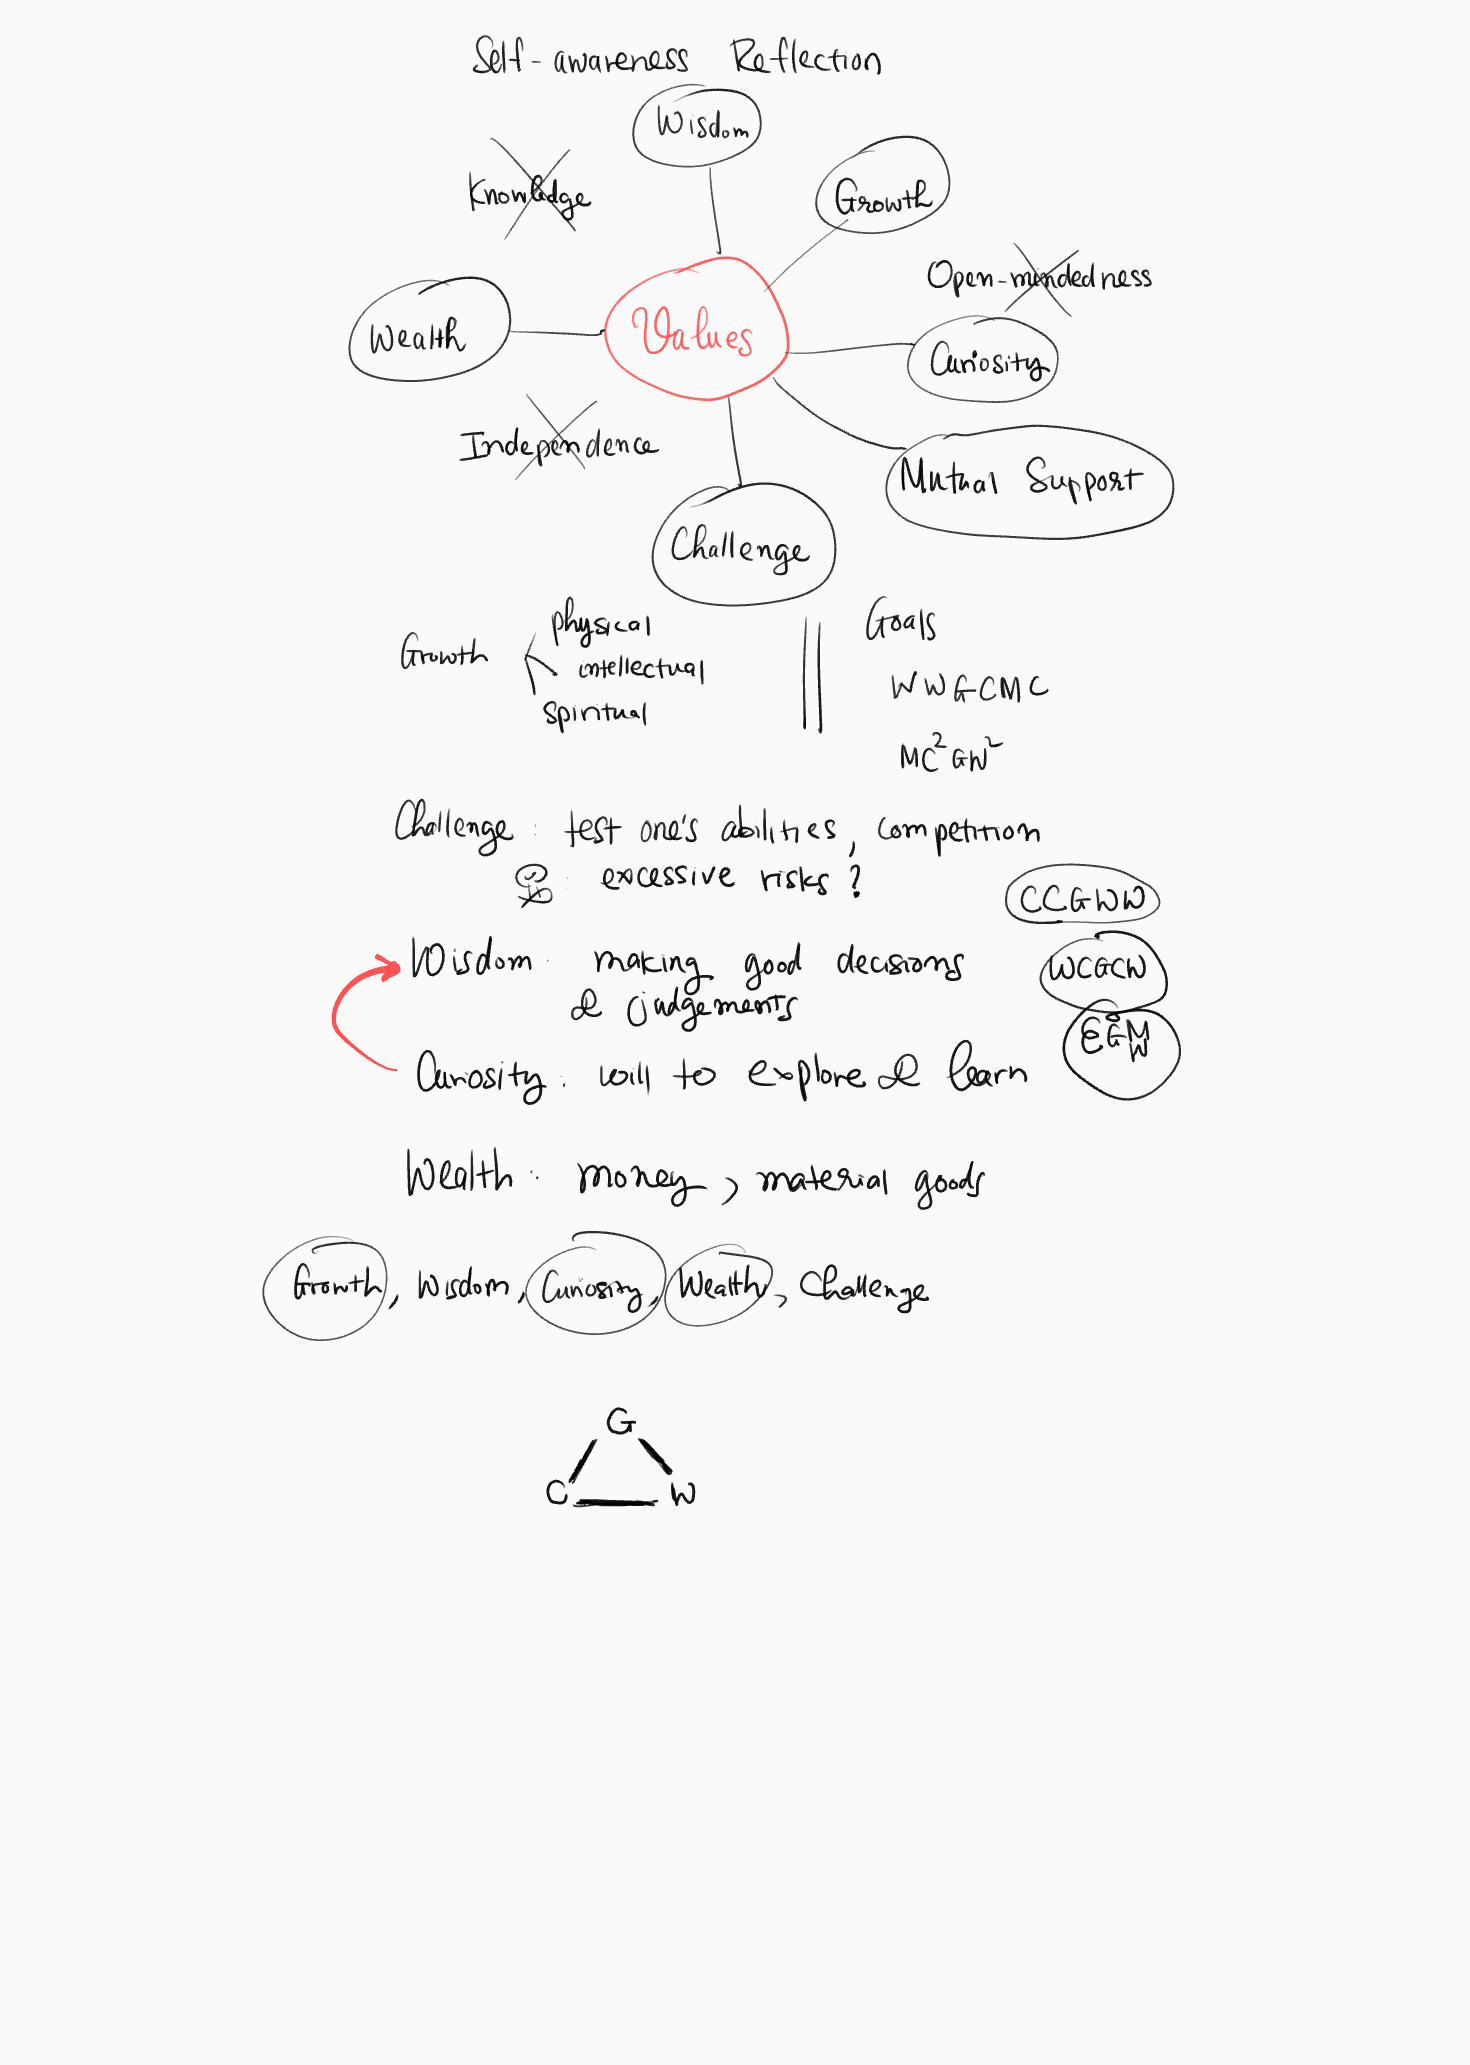 Self-awareness Reflection
Wisdom
Knowledge
Growth
Open-mindedness
Wealth
Values
Curiosity
Independence
Mutual Support
Challenge
Growth
physical
intellectual
spiritual
Goals
WWGCMC
MC²GW²
Challenge: test one's abilities, competition
: excessive risks?
CCGWW
Wisdom: making good decisions
& judgements
WCGCW
Curiosity: will to explore & learn
Wealth: money, material goods
Growth, Wisdom, Curiosity, Wealth, Challenge
G
C W